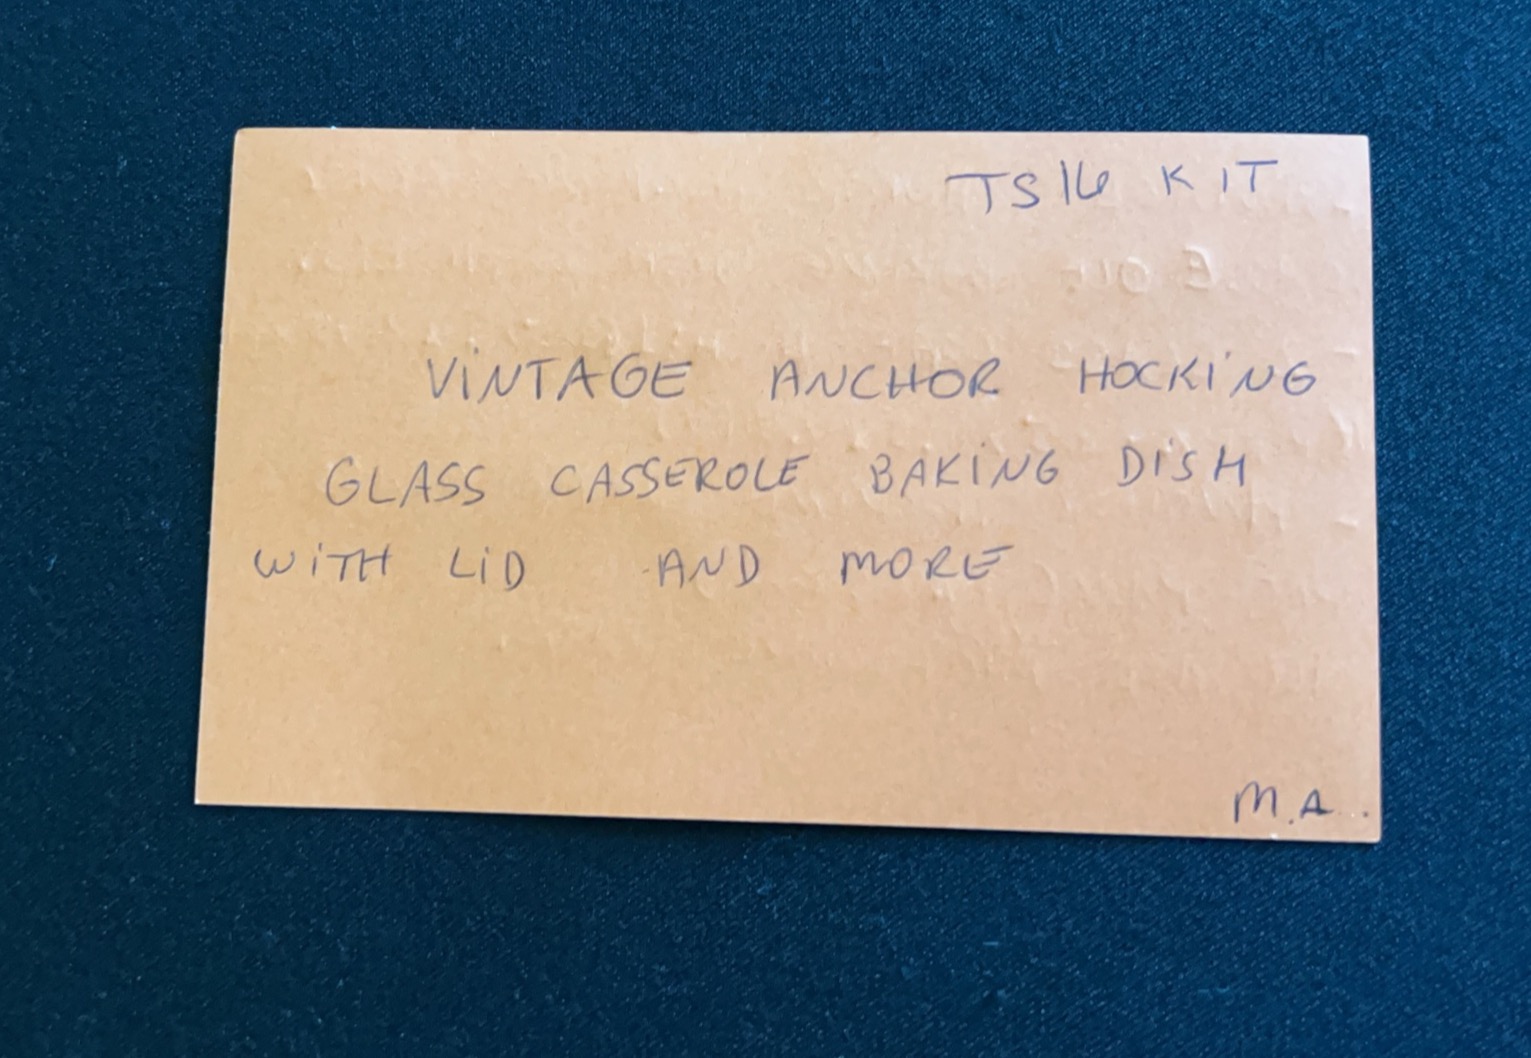 TS16 KIT
VINTAGE ANCHOR HOCKING
GLASS CASSEROLE BAKING DISH
WITH LID AND MORE
M.A..